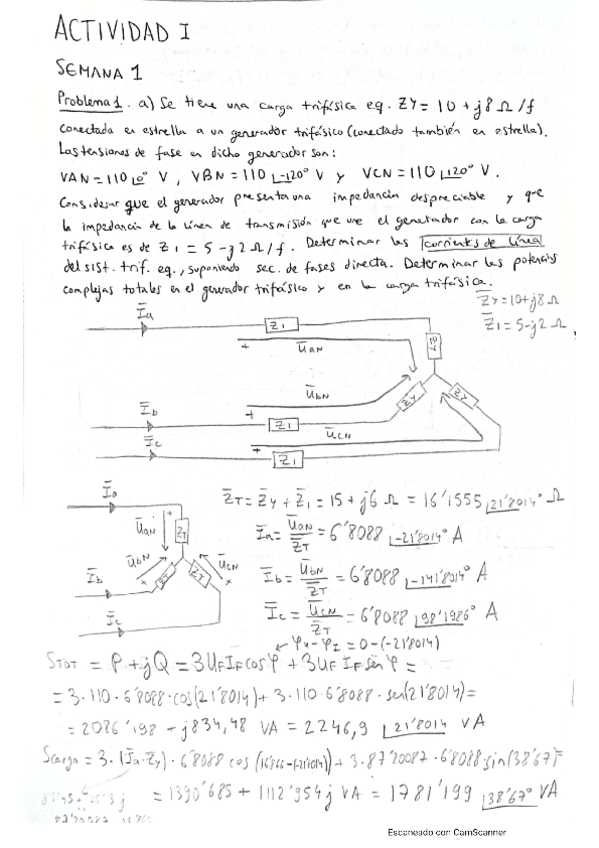 ACTIVIDAD I
SEMANA 1
Problema 1. a) Se tiene una carga trifásica eq. ZY = 10 + j8 Ω/f
conectada en estrella a un generador trifásico (conectado también en estrella).
Las tensiones de fase en dicho generador son:
VAN = 110 ∠0° V, VBN = 110 ∠-120° V y VCN = 110 ∠120° V.
Considerar que el generador presenta una impedancia despreciable y que
la impedancia de la línea de transmisión que une el generador con la carga
trifásica es de Z1 = 5 - j2 Ω/f. Determinar las corrientes de línea
del sist. trif. eq., suponiendo sec. de fases directa. Determinar las potencias
complejas totales en el generador trifásico y en la carga trifásica.
Z̅Y = 10+j8 Ω
Z̅1 = 5-j2 Ω
I̅a
Z1
ZY
+
U̅aN
U̅bN
ZY
ZY
I̅b
+
Z1
U̅cN
I̅c
+
Z1
I̅a
+
U̅aN
ZT
U̅bN
U̅cN
I̅b
+
ZT
ZT
+
I̅c
Z̅T = Z̅Y + Z̅1 = 15 + j6 Ω = 16'1555 ∠21'8014° Ω
I̅a = U̅aN / Z̅T = 6'8088 ∠-21'8014° A
I̅b = U̅bN / Z̅T = 6'8088 ∠-141'8014° A
I̅c = U̅cN / Z̅T = 6'8088 ∠98'1986° A
← φu - φI = 0-(-21'8014)
STOT = P + jQ = 3UF IF cos φ + 3UF IF sen φ =
= 3·110·6'8088·cos(21'8014) + 3·110·6'8088·sen(21'8014) =
= 2086'198 + j834,48 VA = 2246,9 ∠21'8014 VA
Scarga = 3·(I̅a·Z̅Y)·6'8088 cos (-(-21'8014)) + 3·87'20087·6'8088 sin(38'67) =
= 1390'685 + 1112'954j VA = 1781'199 ∠38'67° VA
Escaneado con CamScanner